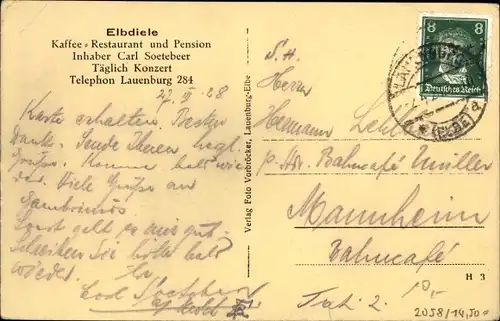 Elbdiele
Kaffee - Restaurant und Pension
Inhaber Carl Soetebeer
Täglich Konzert
Telephon Lauenburg 284
Karte erhalten. Besten
Dank. Sende Ihnen
Grüße. Komme bald
Viele Grüße an
Gambrinus
Sonst geht es mir gut.
Schreiben Sie bitte bald
wieder.
Verlag Foto Vorbröcker, Lauenburg-Elbe
8 8
Deutsches Reich
(ELBE)
S. H.
Herrn
Hermann
p. Adr. Bahncafé Müller
Mannheim
Bahncafé
H 3
10,-
2058/14,50